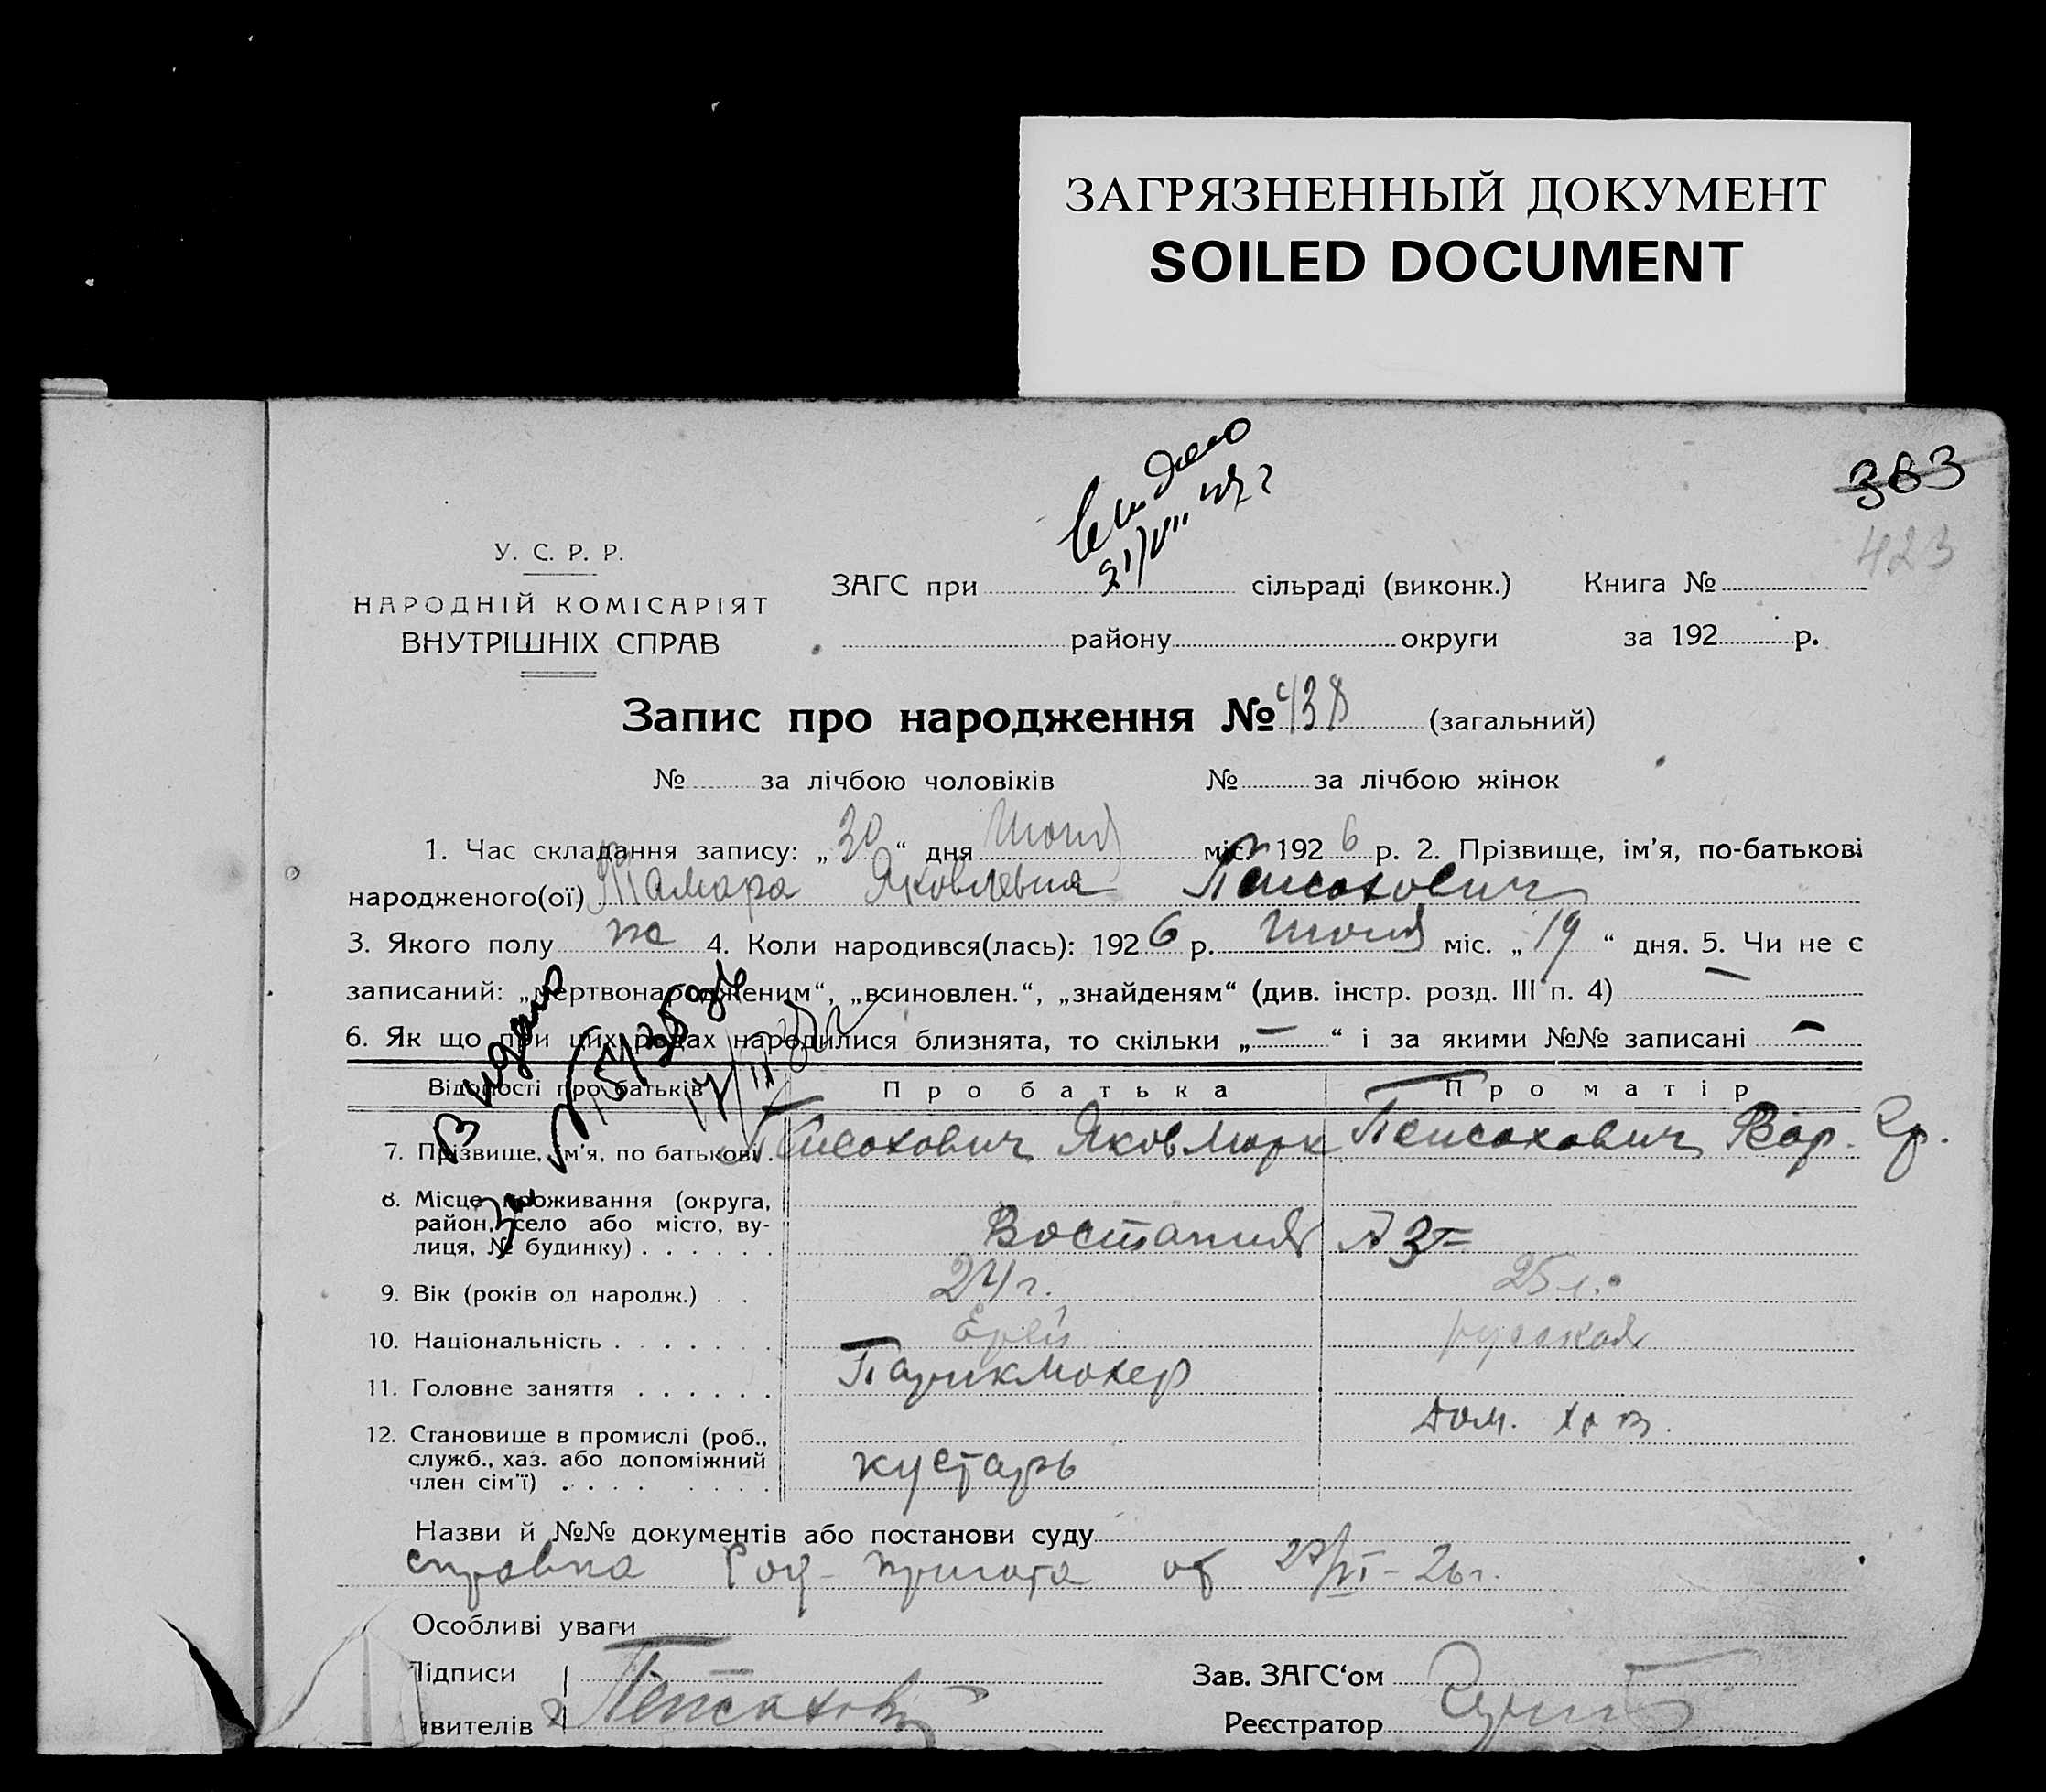 ЗАГРЯЗНЕННЫЙ ДОКУМЕНТ
SOILED DOCUMENT
383
423
У. С. Р. Р.
НАРОДНІЙ КОМІСАРІЯТ
ВНУТРІШНІХ СПРАВ
ЗАГС при сільраді (виконк.) Книга №
району округи за 192 р.
Запис про народження № 438 (загальний)
№ за лічбою чоловіків № за лічбою жінок
1. Час складання запису: „30“ дня Июня міс. 1926 р. 2. Прізвище, ім'я, по-батькові
народженого(ої) Тамара Яковлевна Пейсахович
3. Якого полу ж 4. Коли народився(лась): 1926 р. Июня міс. „19“ дня. 5. Чи не є
записаний: „мертвонародженим“, „всиновлен.“, „знайденям“ (див. інстр. розд. III п. 4) —
6. Як що при цих родах народилися близнята, то скільки „—“ і за якими №№ записані —
Відомості про батьків Про батька Про матір
7. Прізвище, ім'я, по батькові. Пейсахович Яков Марк Пейсахович Вар. Гр.
8. Місце проживання (округа,
район, село або місто, ву-
лиця, № будинку) . . . . . . Востания
9. Вік (років од народж.) . . 24 г. 25 л.
10. Національність . . . . . . . Еврей русская
11. Головне заняття . . . . . . Парикмахер
Дом. хоз.
12. Становище в промислі (роб.,
служб., хаз. або допоміжний
член сім'ї) . . . . . . . . кустарь
Назви й №№ документів або постанови суду
справка Род. приюта от 27/VI - 26 г.
Особливі уваги
Підписи Зав. ЗАГС‘ом
явителів Реєстратор